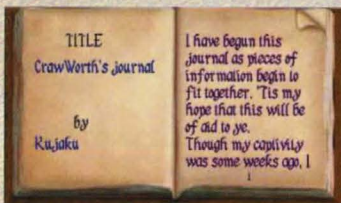 TITLE
CrawWorth's journal
by
Kujaku
I have begun this
journal as pieces of
information begin to
fit together. 'Tis my
hope that this will be
of aid to ye.
Though my captivity
was some weeks ago, I
1